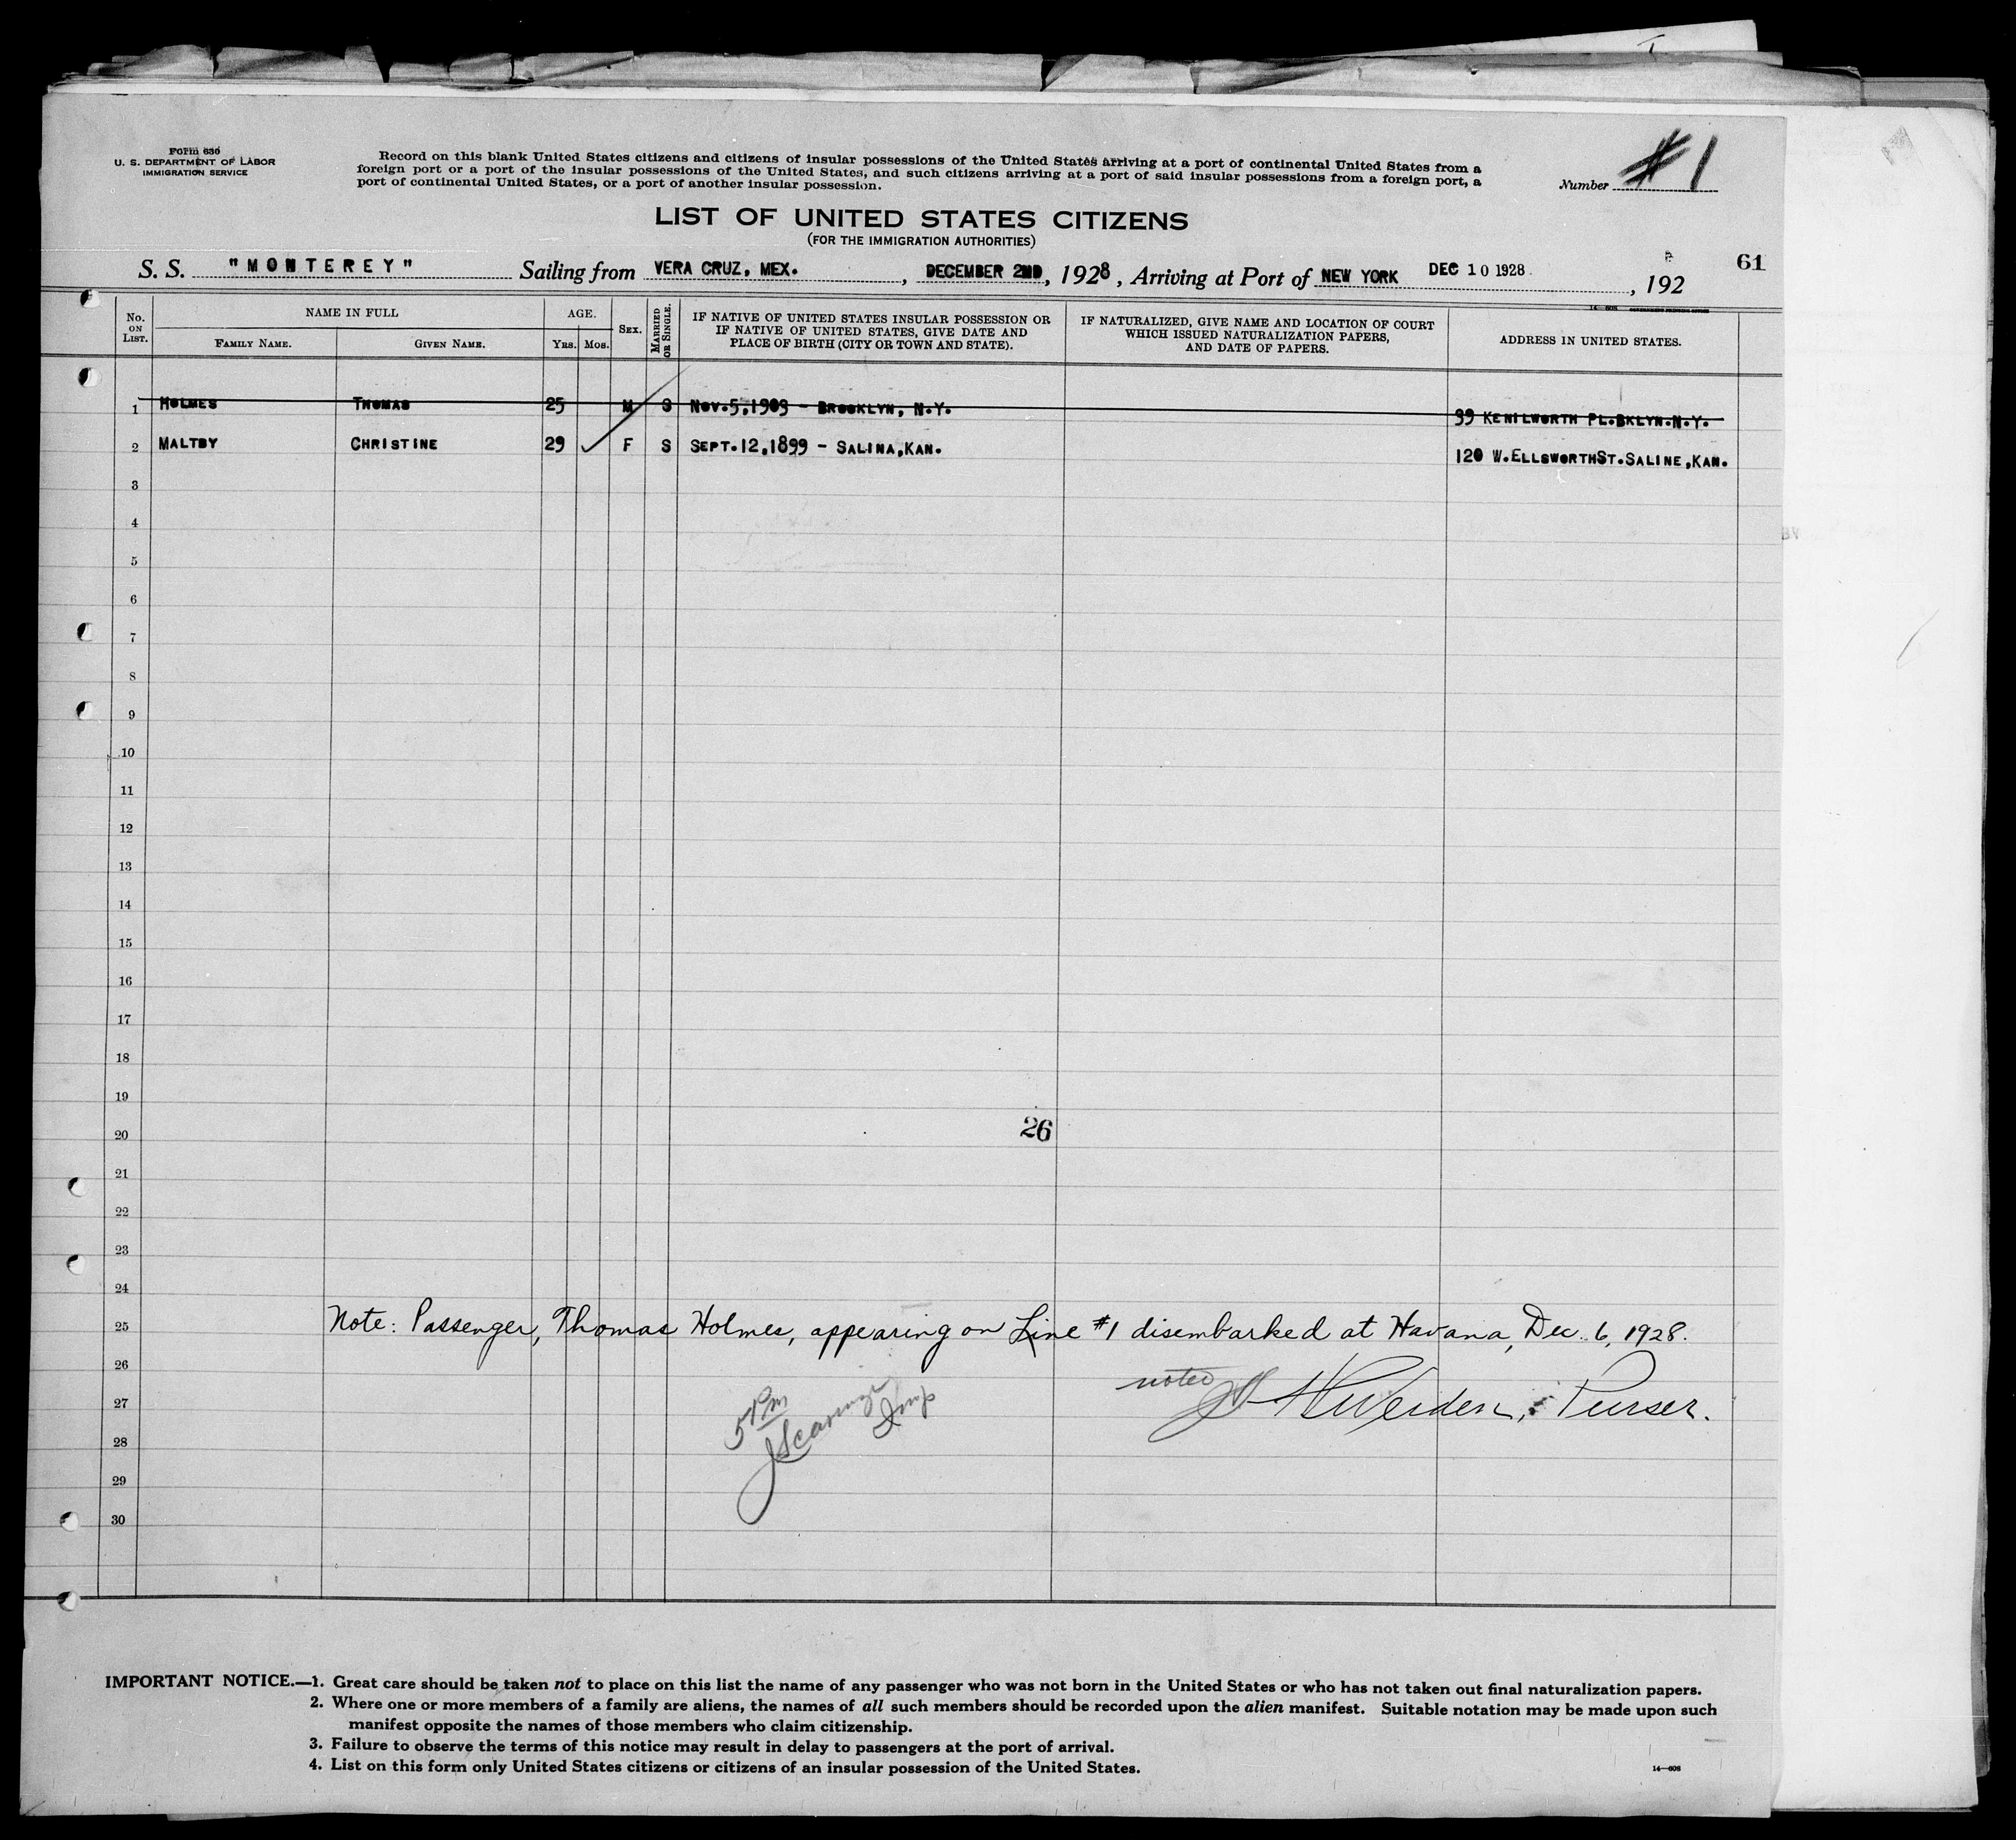 Form 630
U. S. DEPARTMENT OF LABOR
IMMIGRATION SERVICE
Record on this blank United States citizens and citizens of insular possessions of the United States arriving at a port of continental United States from a
foreign port or a port of the insular possessions of the United States, and such citizens arriving at a port of said insular possessions from a foreign port, a
port of continental United States, or a port of another insular possession.
Number #1
LIST OF UNITED STATES CITIZENS
(FOR THE IMMIGRATION AUTHORITIES)
61
S. S. "MONTEREY" Sailing from VERA CRUZ, MEX. , DECEMBER 2ND, 1928, Arriving at Port of NEW YORK DEC 10 1928 , 192
No. ON LIST. NAME IN FULL AGE. SEX. MARRIED OR SINGLE. IF NATIVE OF UNITED STATES INSULAR POSSESSION OR IF NATIVE OF UNITED STATES, GIVE DATE AND PLACE OF BIRTH (CITY OR TOWN AND STATE). IF NATURALIZED, GIVE NAME AND LOCATION OF COURT WHICH ISSUED NATURALIZATION PAPERS, AND DATE OF PAPERS. ADDRESS IN UNITED STATES.
FAMILY NAME. GIVEN NAME. Yrs. Mos.
1 HOLMES THOMAS 25 M S NOV.5,1903 - BROOKLYN, N.Y. 99 KENILWORTH PL.BKLYN.N.Y.
2 MALTBY CHRISTINE 29 F S SEPT.12,1899 - SALINA,KAN. 120 W.ELLSWORTHST.SALINE,KAN.
3
4
5
6
7
8
9
10
11
12
13
14
15
16
17
18
19
26
20
21
22
23
24
25 Note: Passenger, Thomas Holmes, appearing on Line #1 disembarked at Havana, Dec. 6, 1928.
26 noted
27 Purser.
5 PM
Insp
28
29
30
IMPORTANT NOTICE.—1. Great care should be taken not to place on this list the name of any passenger who was not born in the United States or who has not taken out final naturalization papers.
2. Where one or more members of a family are aliens, the names of all such members should be recorded upon the alien manifest. Suitable notation may be made upon such
manifest opposite the names of those members who claim citizenship.
3. Failure to observe the terms of this notice may result in delay to passengers at the port of arrival.
4. List on this form only United States citizens or citizens of an insular possession of the United States.
14—608